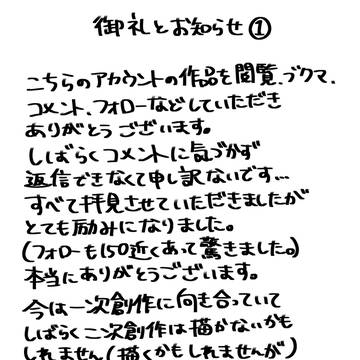 御礼とお知らせ①
こちらのアカウントの作品を閲覧、ブクマ、
コメント、フォローなどしていただき
ありがとうございます。
しばらくコメントに気づかず
返信できなくて申し訳ないです…
すべて拝見させていただきましたが
とても励みになりました。
(フォローも150近くあって驚きました。)
本当にありがとうございます。
今は一次創作に向き合っていて
しばらく二次創作は描かないかも
しれません(描くかもしれませんが)